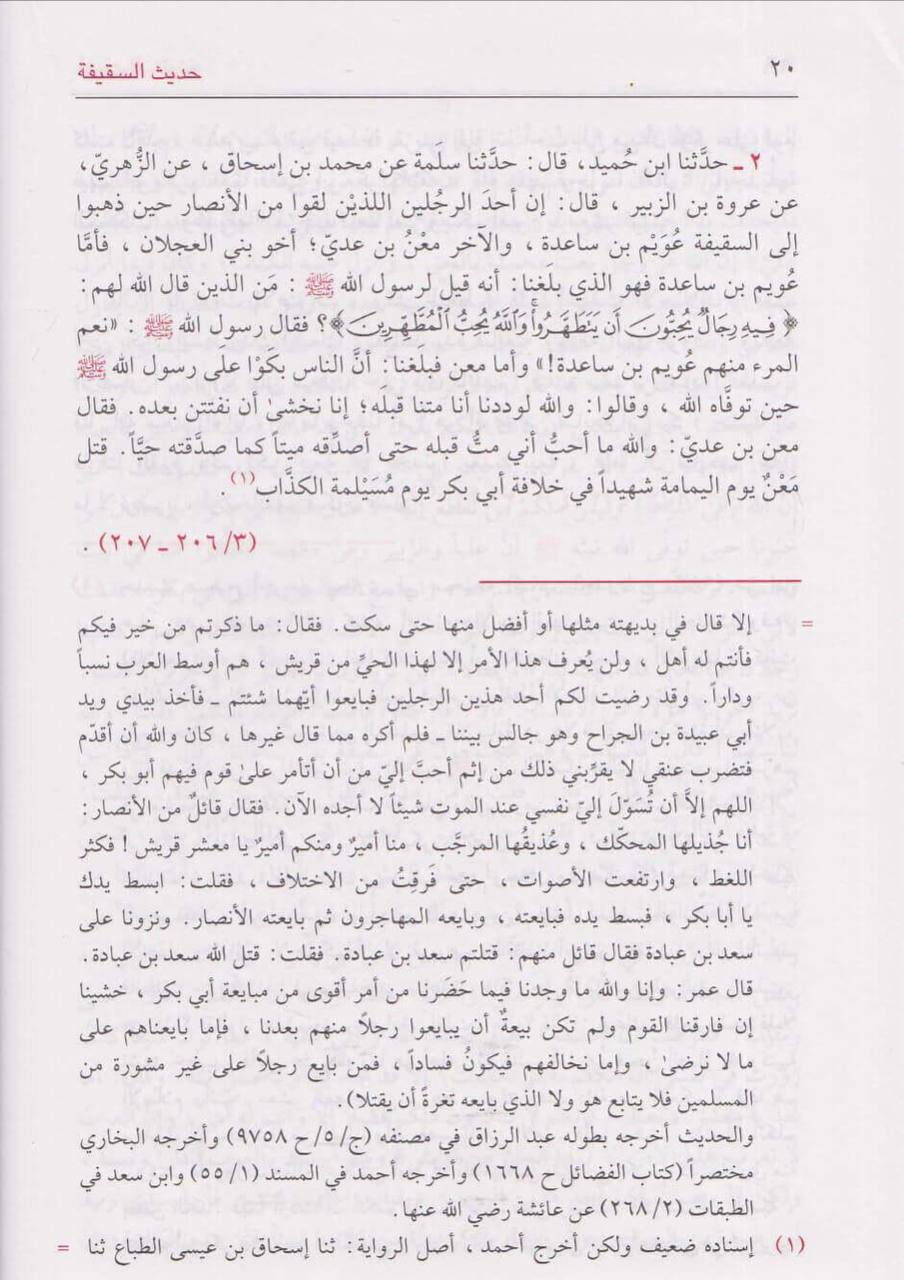 ٢٠
حديث السقيفة
٢ ـ حدَّثنا ابن حُميد، قال: حدَّثنا سلمة عن محمد بن إسحاق ، عن الزُّهريّ،
عن عروة بن الزبير ، قال: إن أحدَ الرجُلين اللذيْن لقوا من الأنصار حين ذهبوا
إلى السقيفة عُوَيْم بن ساعدة ، والآخر معْنُ بن عديّ؛ أخو بني العجلان ، فأمَّا
عُويم بن ساعدة فهو الذي بلغنا: أنه قيل لرسول الله ﷺ : مَن الذين قال الله لهم:
﴿ فِيهِ رِجَالٌ يُحِبُّونَ أَن يَتَطَهَّرُواْ وَٱللَّهُ يُحِبُّ ٱلْمُطَّهِّرِينَ ﴾؟ فقال رسول الله ﷺ : «نعم
المرء منهم عُويم بن ساعدة!» وأما معن فبلغنا: أنَّ الناس بكَوْا على رسول الله ﷺ
حين توفَّاه الله ، وقالوا: والله لوددنا أنا متنا قبله؛ إنا نخشىٰ أن نفتتن بعده. فقال
معن بن عديّ: والله ما أحبُّ أني متُّ قبله حتى أصدِّقه ميتاً كما صدَّقته حيَّاً. قتل
مَعْنٌ يوم اليمامة شهيداً في خلافة أبي بكر يوم مُسَيْلمة الكذَّاب(١).
(٣/ ٢٠٦ ـ ٢٠٧) .
= إلا قال في بديهته مثلها أو أفضل منها حتى سكت. فقال: ما ذكرتم من خير فيكم
فأنتم له أهل ، ولن يُعرف هذا الأمر إلا لهذا الحيِّ من قريش ، هم أوسط العرب نسباً
وداراً. وقد رضيت لكم أحد هذين الرجلين فبايعوا أيّهما شئتم ـ فأخذ بيدي ويد
أبي عبيدة بن الجراح وهو جالس بيننا ـ فلم أكره مما قال غيرها ، كان والله أن أقدَّم
فتضرب عنقي لا يقرِّبني ذلك من إثم أحبَّ إليّ من أن أتأمر علىٰ قوم فيهم أبو بكر ،
اللهم إلاَّ أن تُسَوّلَ إليّ نفسي عند الموت شيئاً لا أجده الآن. فقال قائلٌ من الأنصار:
أنا جُذيلها المحكّك ، وعُذيقُها المرجَّب ، منا أميرٌ ومنكم أميرٌ يا معشر قريش ! فكثر
اللغط ، وارتفعت الأصوات ، حتى فَرِقِتُ من الاختلاف ، فقلت: ابسط يدك
يا أبا بكر ، فبسط يده فبايعته ، وبايعه المهاجرون ثم بايعته الأنصار. ونزونا على
سعد بن عبادة فقال قائل منهم: قتلتم سعد بن عبادة. فقلت: قتل الله سعد بن عبادة.
قال عمر: وإنا والله ما وجدنا فيما حَضَرنا من أمر أقوى من مبايعة أبي بكر ، خشينا
إن فارقنا القوم ولم تكن بيعةٌ أن يبايعوا رجلاً منهم بعدنا ، فإما بايعناهم على
ما لا نرضىٰ ، وإما نخالفهم فيكونُ فساداً ، فمن بايع رجلاً على غير مشورة من
المسلمين فلا يتابع هو ولا الذي بايعه تغرةً أن يقتلا).
والحديث أخرجه بطوله عبد الرزاق في مصنفه (ج/ ٥/ ح ٩٧٥٨) وأخرجه البخاري
مختصراً (كتاب الفضائل ح ١٦٦٨) وأخرجه أحمد في المسند (١/ ٥٥) وابن سعد في
الطبقات (٢/ ٢٦٨) عن عائشة رضي الله عنها.
(١) إسناده ضعيف ولكن أخرج أحمد ، أصل الرواية: ثنا إسحاق بن عيسى الطباع ثنا =